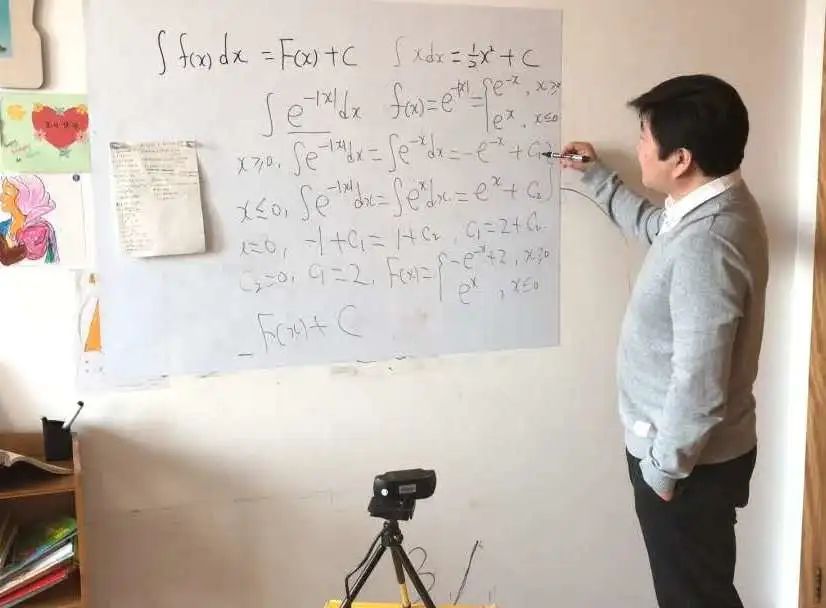 ∫ f(x) dx = F(x) + C   ∫ x dx = ½x² + C
∫ e^{-|x|} dx   f(x) = e^{-|x|} = { e^{-x}, x≥0
e^{x}, x≤0
x≥0, ∫ e^{-|x|} dx = ∫ e^{-x} dx = -e^{-x} + C₁
x≤0, ∫ e^{-|x|} dx = ∫ e^{x} dx = e^{x} + C₂
x=0, -1+C₁ = 1+C₂, C₁ = 2+C₂
C₂=0, C₁=2, F(x) = { -e^{-x}+2, x≥0
e^{x}, x≤0
F(x) + C